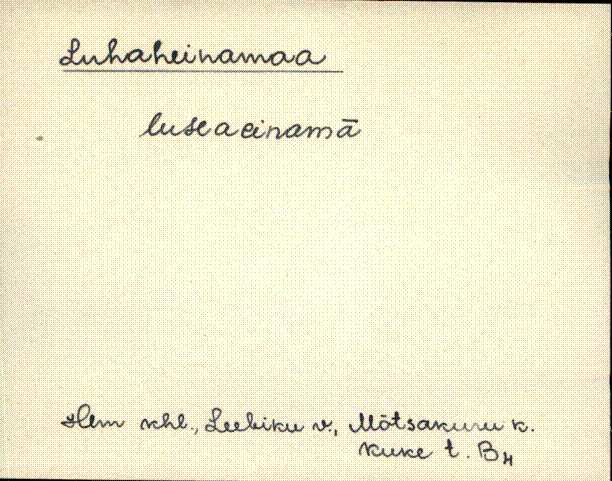 Luhaheinamaa
luseaeinamā
Hem khl., Leebiku v., Mõtsakuru k.
Kuke t. B4